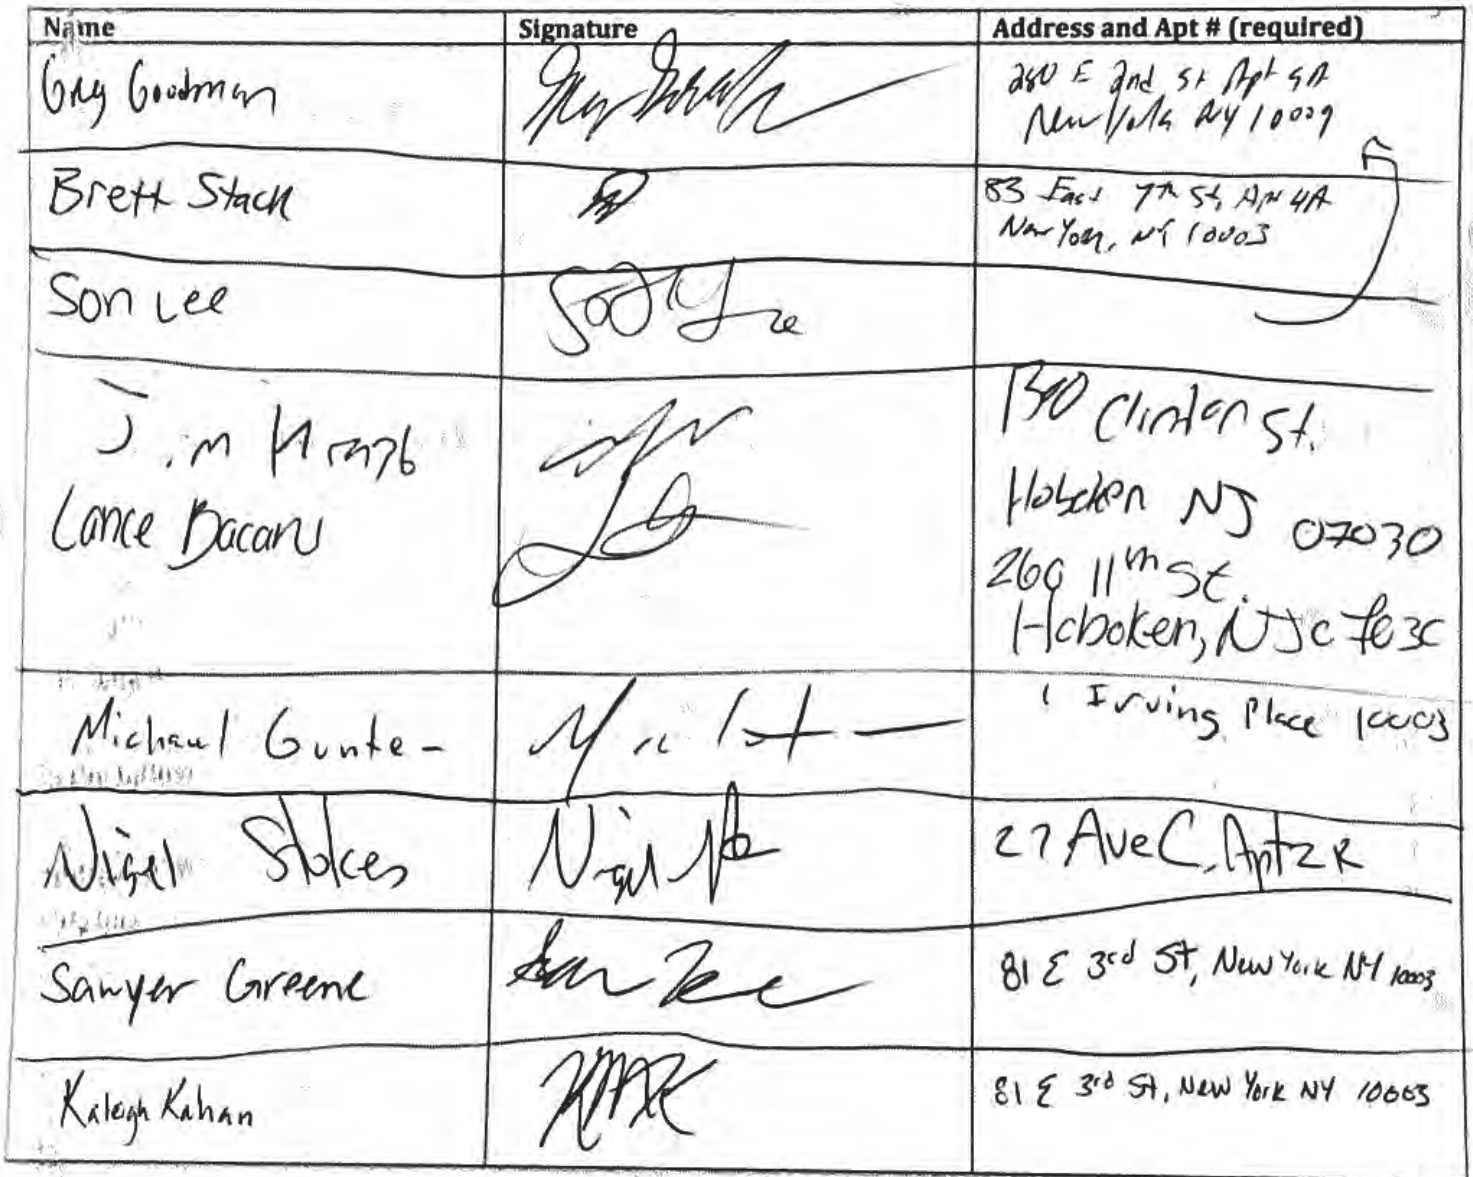 Name Signature Address and Apt # (required)
Greg Goodman 280 E 2nd St Apt 9A
New York NY 10009
Brett Stack 83 East 7th St, Apt 4A
New York, NY 10003
Son Lee
Jim 1300 Clinton St.
Hoboken NJ 07030
Lance Bacani 260 11th St.
Hoboken, NJ 07030
Michael Gunter 1 Irving Place 10003
Nigel Stokes Nigel 27 Ave C, Apt 2R
Sawyer Greene 81 E 3rd St, New York NY 10003
Kaleigh Kahan 81 E 3rd St, New York NY 10003